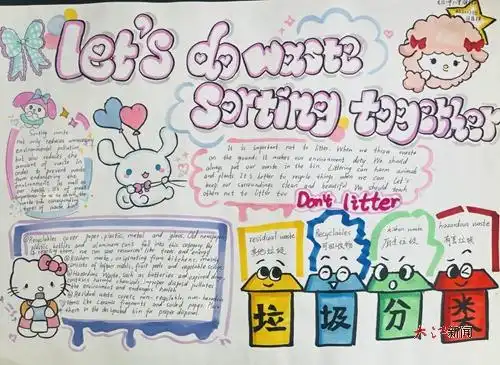 Let's do waste
Sorting together
Sorting waste
not only reduces
environmental pollution
but also reduces the
amount of waste in
It is important not to litter. When we throw waste
on the ground it makes our environment dirty. We should
always put our waste in the bin. Littering can harm animals
and plants. It's better to recycle things when we can. Let's
keep our surroundings clean and beautiful. We should teach
others not to litter too
Don't litter
Recyclables cover paper, plastic, metal and glass. Old newspapers
plastic bottles and aluminum cans fall into this category. By
recycling them, we can save resources and energy
Kitchen waste, originating from kitchens, mainly
consists of leftover meals, fruit peels and vegetable scraps
Hazardous waste, such as batteries and
contains harmful chemicals. Improper disposal pollutes
the environment and endangers health
Residual waste covers non-recyclable, non-hazardous
items like ceramic fragments and soiled paper. Place
them in the designated bin for proper disposal
residual waste
其他垃圾
Recyclables
可回收物
kitchen waste
厨余垃圾
hazardous waste
有害垃圾
垃 圾 分 类
新闻